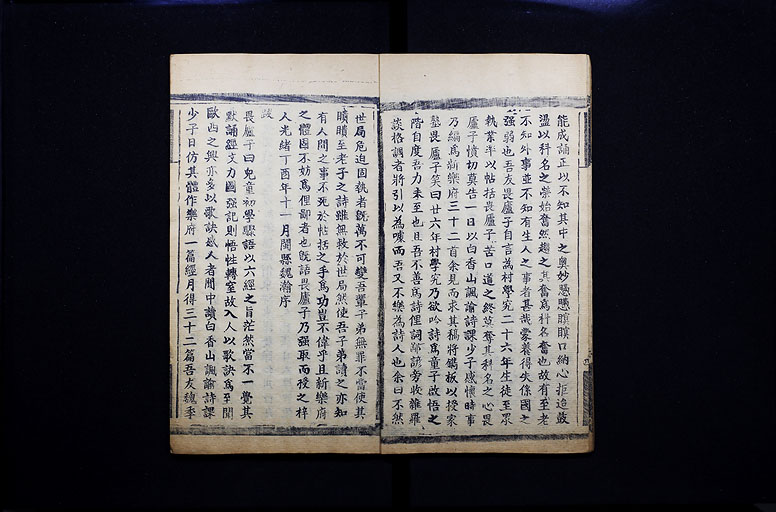 能成誦正以不知其中之奧妙戀戀瞋瞋口納心拒迨鼓
盪以科名之榮始奮然趨之其奮爲科名奮也故有至老
不知外事並不知有生人之事者甚哉蒙養得失係國之
强弱也吾友畏廬子自言為村學究二十六年生徒至眾
執業半以帖括喪廬子苦口道之終莫奪其科名之心畏
廬子憤切莫告一日以白香山諷諭詩課少子感懷時事
乃編爲新樂府三十二首余見而求其稿將鐫板以授家
塾畏廬子笑曰廿六年村學究乃欲吟詩爲童子啟悟之
階自度吾力未至也且吾不善爲詩俚詞鄙諺旁收雜羅
談格調者將引以為噱而吾又不樂為詩人也余曰不然
世局危迫固執者既萬不可變吾輩子弟無罪不當使其
瞶瞶至老子之詩雖無救於世局然使吾子弟讀之亦知
有人間之事不死於帖括之手爲功豈不偉乎且新樂府
之體固不妨爲俚鄙者也既語畏廬子乃强取而授之梓
人光緒丁酉年十一月閩縣魏瀚序
跋
畏廬子曰兒童初學驟語以六經之旨茫然當不一覺其
默誦經文力圖强記則悟性轉窒故入人以歌訣爲至聞
歐西之興亦多以歌訣感人者閒中讀白香山諷諭詩課
少子日仿其體作樂府一篇經月得三十二篇吾友魏季